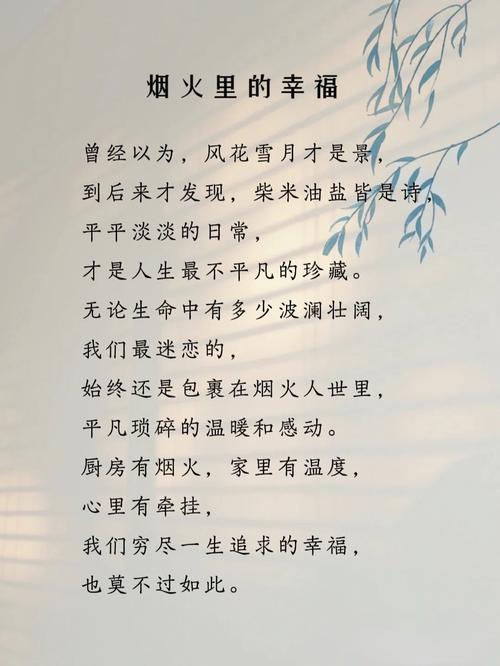 烟火里的幸福
曾经以为，风花雪月才是景，
到后来才发现，柴米油盐皆是诗，
平平淡淡的日常，
才是人生最不平凡的珍藏。
无论生命中有多少波澜壮阔，
我们最迷恋的，
始终还是包裹在烟火人世里，
平凡琐碎的温暖和感动。
厨房有烟火，家里有温度，
心里有牵挂，
我们穷尽一生追求的幸福，
也莫不过如此。